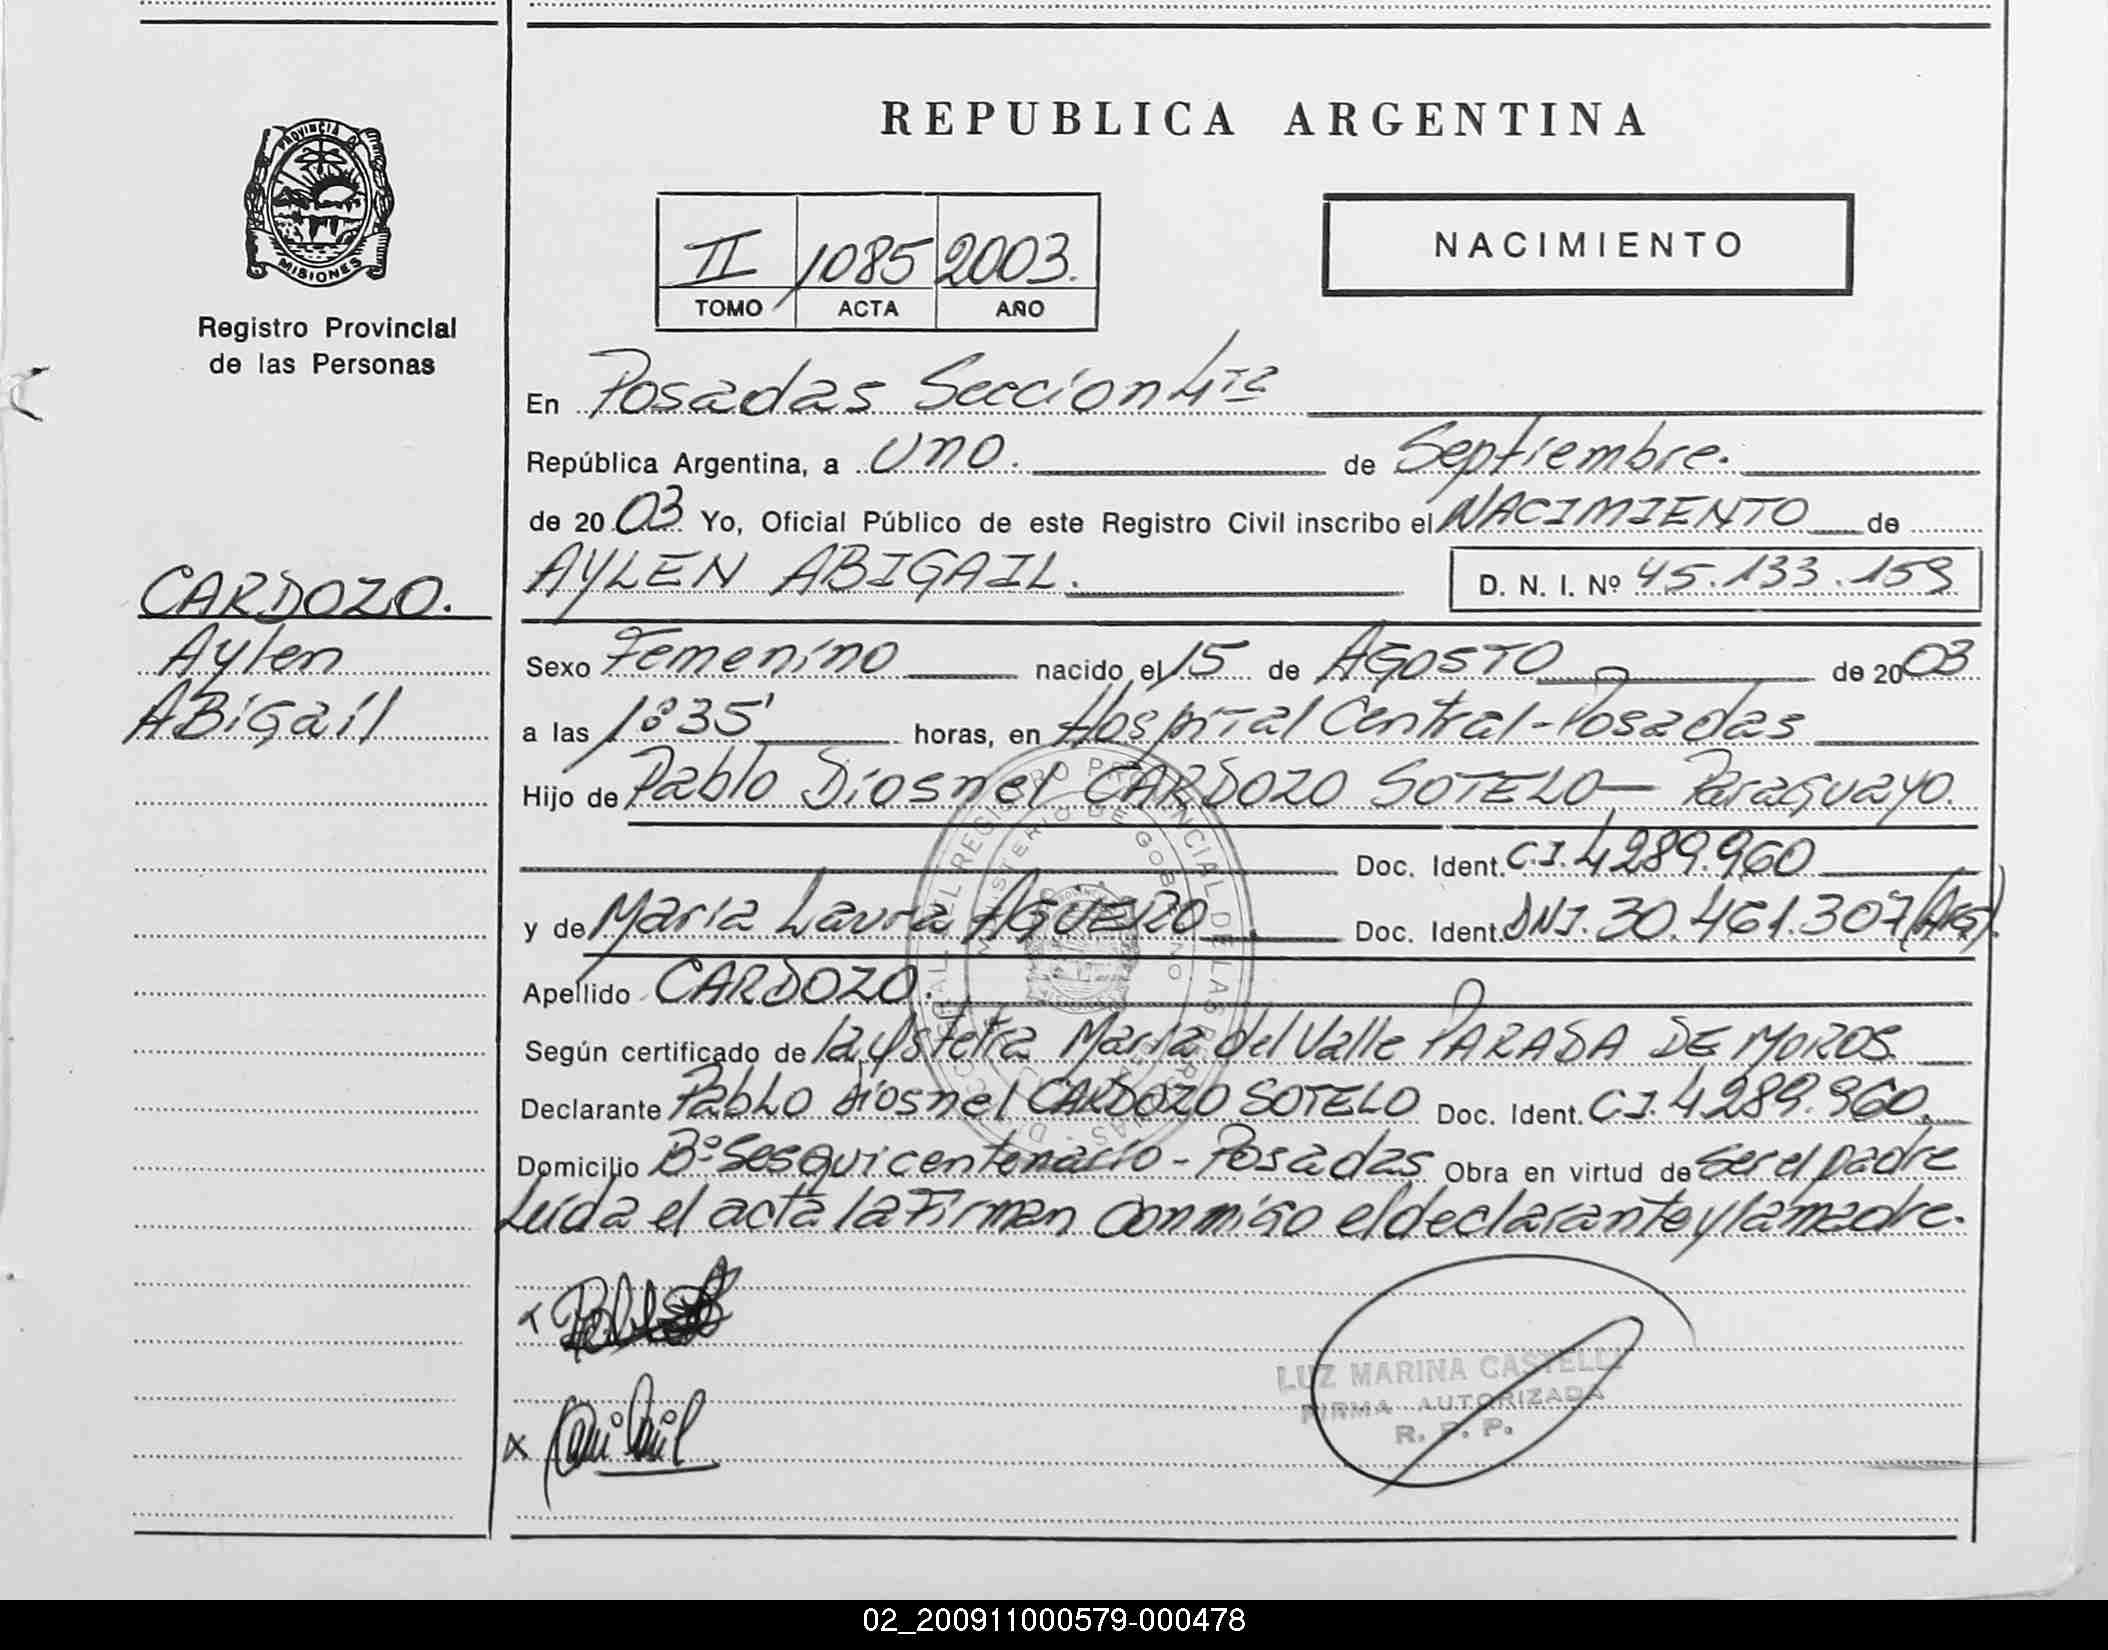 REPUBLICA ARGENTINA
PROVINCIA DE
MISIONES
Registro Provincial
de las Personas
II 1085 2003.
TOMO ACTA AÑO
NACIMIENTO
En Posadas Seccion 4ta
República Argentina, a uno. de Septiembre.
de 2003 Yo, Oficial Público de este Registro Civil inscribo el NACIMIENTO de
AYLEN ABIGAIL. D. N. I. Nº 45.133.159
CARDOZO.
Aylen
ABigail
Sexo Femenino nacido el 15 de AGOSTO de 2003
a las 1º35' horas, en Hospital Central-Posadas
Hijo de Pablo Diosnel CARDOZO SOTELO — Paraguayo.
Doc. Ident. C.I. 4289.960
y de Maria Laura AGÜERO Doc. Ident. DNI. 30.461.307 (AG).
Apellido CARDOZO.
Según certificado de la Ostetra Maria del Valle PARADA DE MOROS
Declarante PabLo diosnel CARDOZO SOTELO Doc. Ident. C.I. 4289.960.
Domicilio Bº Sesquicentenario - Posadas Obra en virtud de ser el padre
Leída el acta la Firman Conmigo el declarante y la madre.
LUZ MARINA CASTELLI
FIRMA AUTORIZADA
R. P. P.
02_200911000579-000478